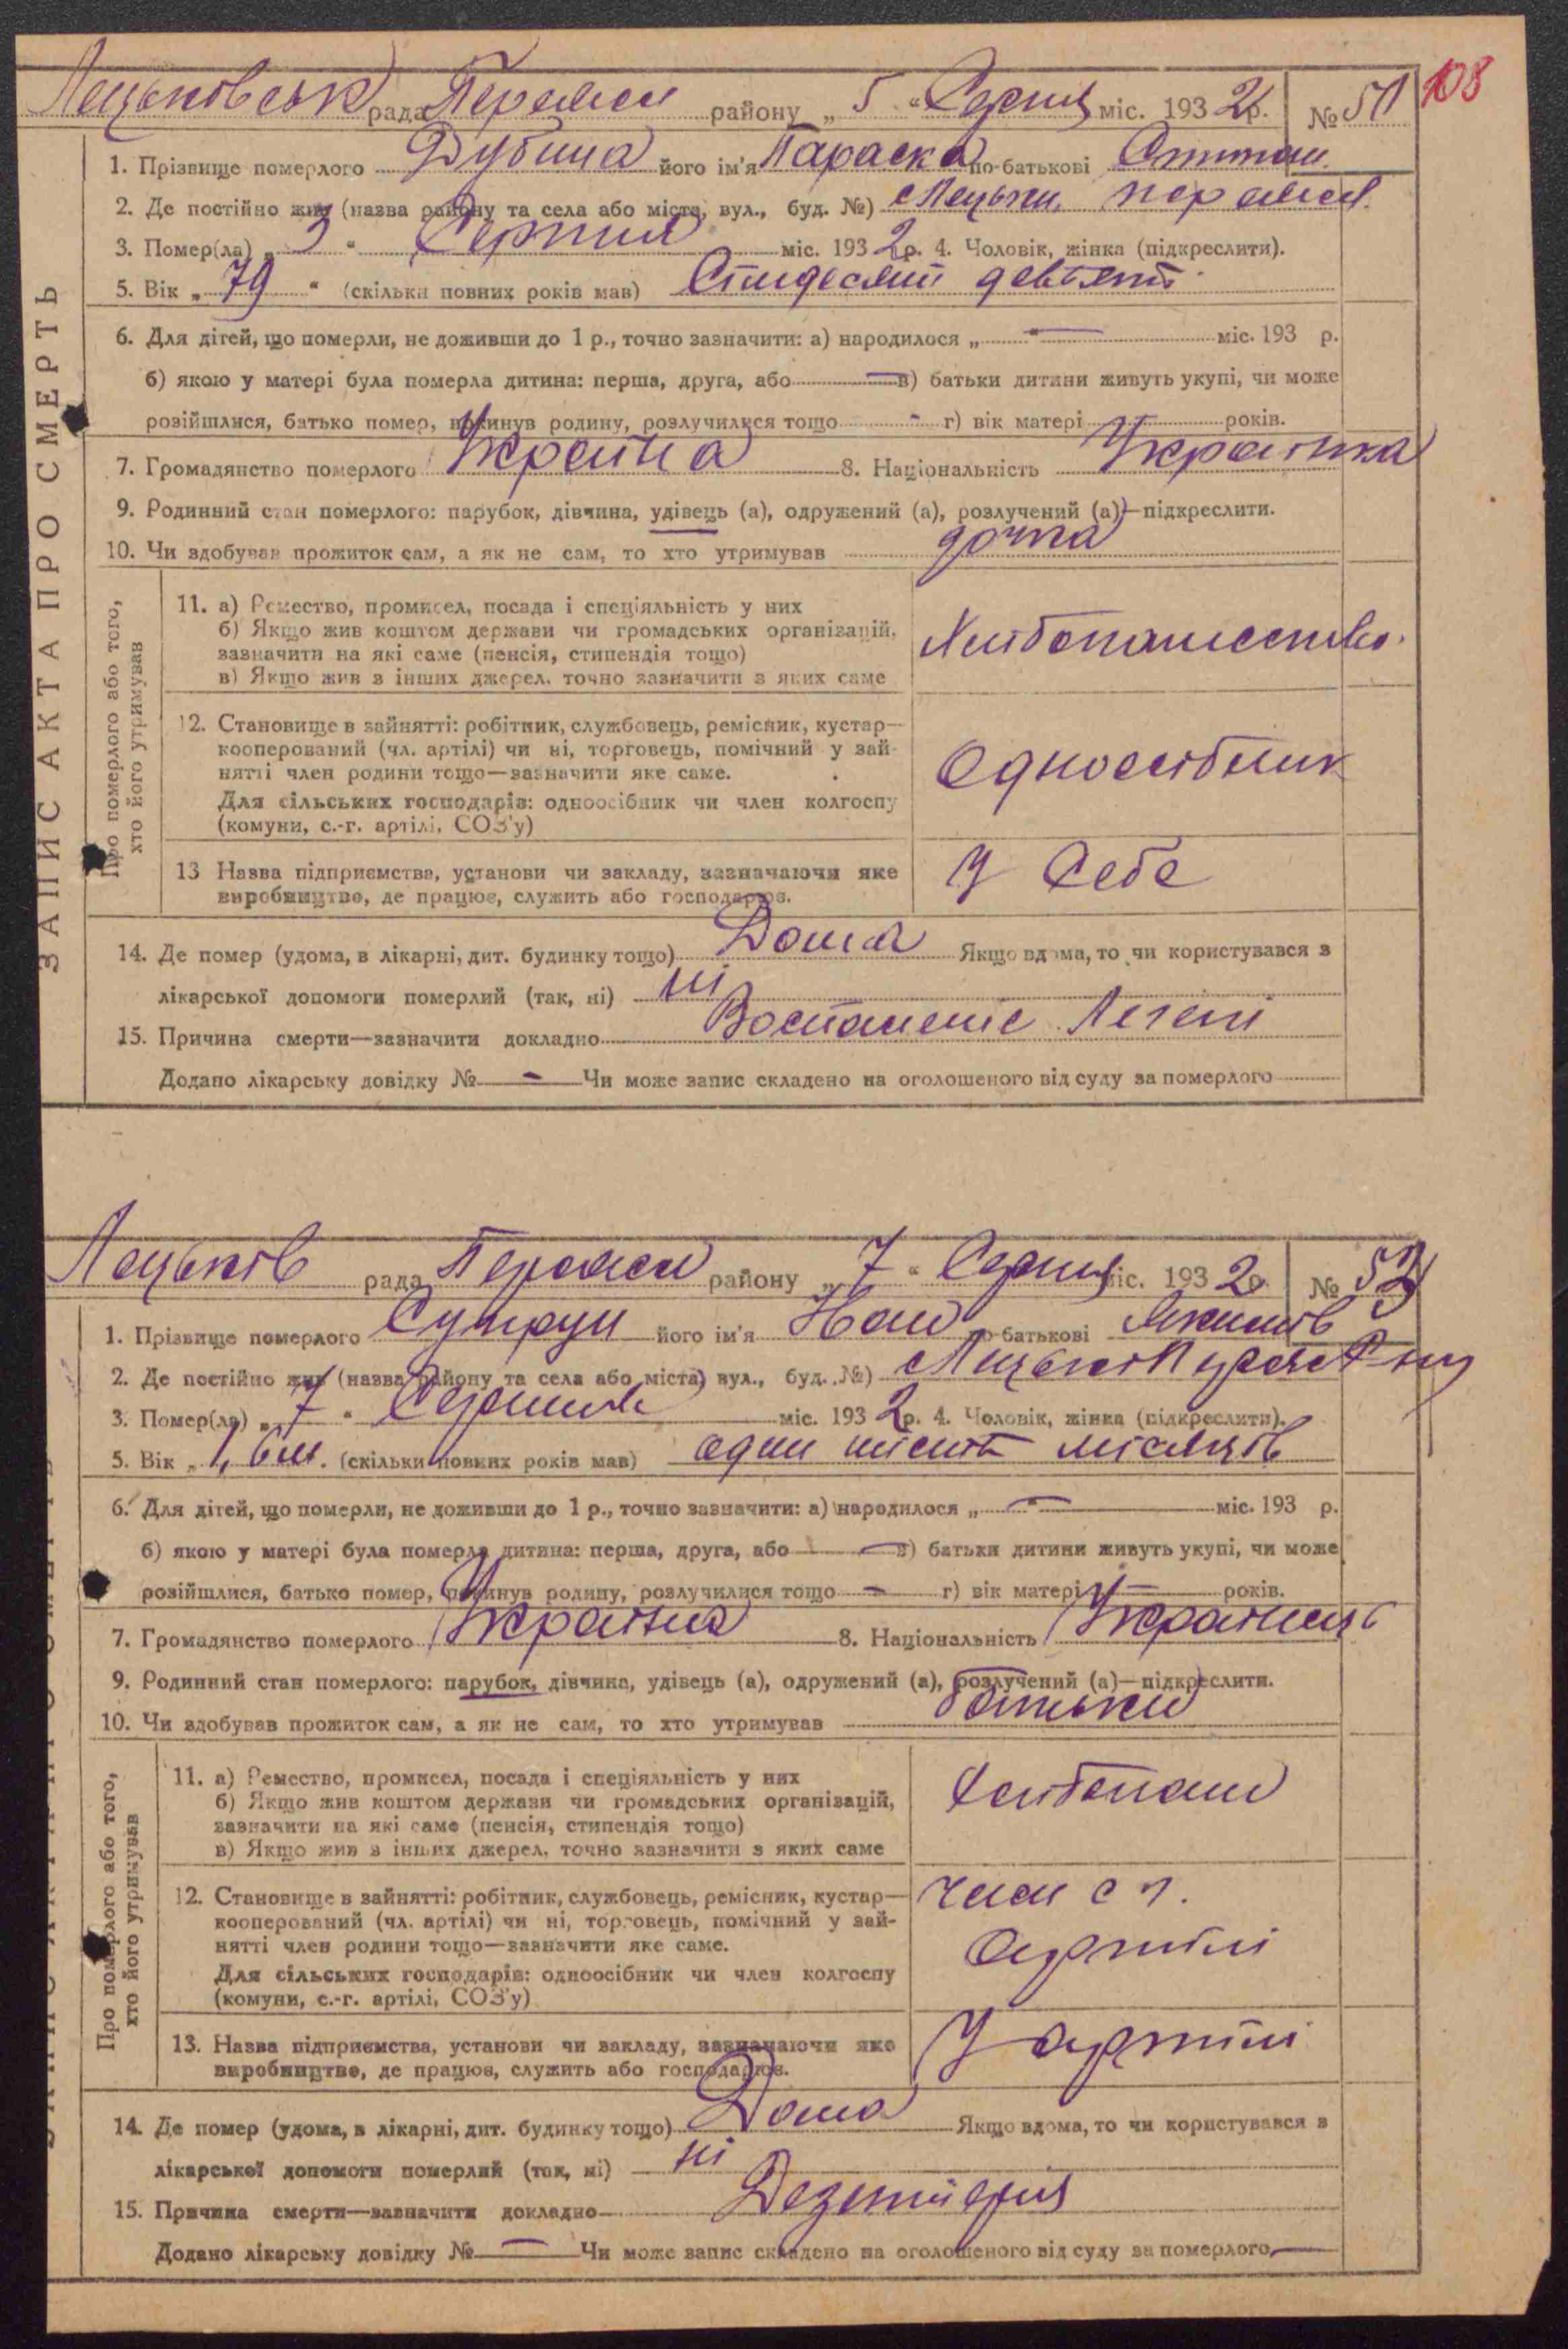 108
Лецьковськ рада Переясл району „ 5 “ Серпня міс. 1932 р. № 51
ЗАПИС АКТА ПРО СМЕРТЬ
1. Прізвище померлого Дубина його ім'я Параска по-батькові
2. Де постійно жив (назва району та села або міста, вул., буд. №) с Лецьки Переясл.
3. Помер(ла) „ 3 “ Серпня міс. 1932 р. 4. Чоловік, жінка (підкреслити).
5. Вік „ 79 “ (скільки повних років мав) Сімдесят девьять
6. Для дітей, що померли, не доживши до 1 р., точно зазначити: а) народилося „ — “ міс. 193 р.
б) якою у матері була померла дитина: перша, друга, або — в) батьки дитини живуть укупі, чи може
розійшлися, батько помер, покинув родину, розлучилися тощо - г) вік матері — років.
7. Громадянство померлого Україна 8. Національність Українка
9. Родинний стан померлого: парубок, дівчина, удівець (а), одружений (а), розлучений (а)—підкреслити.
10. Чи здобував прожиток сам, а як не сам, то хто утримував дочка
Про померлого або того, хто його утримував
11. а) Ремество, промисел, посада і спеціяльність у них
б) Якщо жив коштом держави чи громадських організацій,
зазначити на які саме (пенсія, стипендія тощо)
в) Якщо жив з інших джерел, точно зазначити з яких саме
Хлібопашество.
12. Становище в зайнятті: робітник, службовець, ремісник, кустар—
кооперований (чл. артілі) чи ні, торговець, помічний у зай-
нятті член родини тощо—зазначити яке саме.
Для сільських господарів: одноосібник чи член колгоспу
(комуни, с.-г. артілі, СОЗ'у)
Одноосібник
13 Назва підприємства, установи чи закладу, зазначаючи яке
виробництво, де працює, служить або господарює.
У Себе
14. Де помер (удома, в лікарні, дит. будинку тощо) Дома Якщо вдома, то чи користувався з
лікарської допомоги померлий (так, ні) ні
15. Причина смерти—зазначити докладно Воспаление Легені
Додано лікарську довідку № - Чи може запис складено на оголошеного від суду за померлого
Лецьків рада Переясл району „ 7 “ Серпня міс. 1932 р. № 52
1. Прізвище померлого Супрун його ім'я Іван по-батькові Якимів
2. Де постійно жив (назва району та села або міста, вул., буд. №) с Лецьки Переясл р-ну
3. Помер(ла) „ 7 “ Серпня міс. 1932 р. 4. Чоловік, жінка (підкреслити).
5. Вік „ 1, 6 м. (скільки повних років мав) один шість місяців
6. Для дітей, що померли, не доживши до 1 р., точно зазначити: а) народилося „ — “ міс. 193 р.
б) якою у матері була померла дитина: перша, друга, або — в) батьки дитини живуть укупі, чи може
розійшлися, батько помер, покинув родину, розлучилися тощо - г) вік матері — років.
7. Громадянство померлого Україна 8. Національність Українець
9. Родинний стан померлого: парубок, дівчина, удівець (а), одружений (а), розлучений (а)—підкреслити.
10. Чи здобував прожиток сам, а як не сам, то хто утримував батьки
Про померлого або того, хто його утримував
11. а) Ремество, промисел, посада і спеціяльність у них
б) Якщо жив коштом держави чи громадських організацій,
зазначити на які саме (пенсія, стипендія тощо)
в) Якщо жив з інших джерел, точно зазначити з яких саме
Хлібопаш
12. Становище в зайнятті: робітник, службовець, ремісник, кустар—
кооперований (чл. артілі) чи ні, торговець, помічний у зай-
нятті член родини тощо—зазначити яке саме.
Для сільських господарів: одноосібник чи член колгоспу
(комуни, с.-г. артілі, СОЗ'у)
член с г.
артілі
13. Назва підприємства, установи чи закладу, зазначаючи яке
виробництво, де працює, служить або господарює.
У артілі
14. Де помер (удома, в лікарні, дит. будинку тощо) Дома Якщо вдома, то чи користувався з
лікарської допомоги померлий (так, ні) ні
15. Причина смерти—зазначити докладно Дезентерія
Додано лікарську довідку № — Чи може запис складено на оголошеного від суду за померлого —